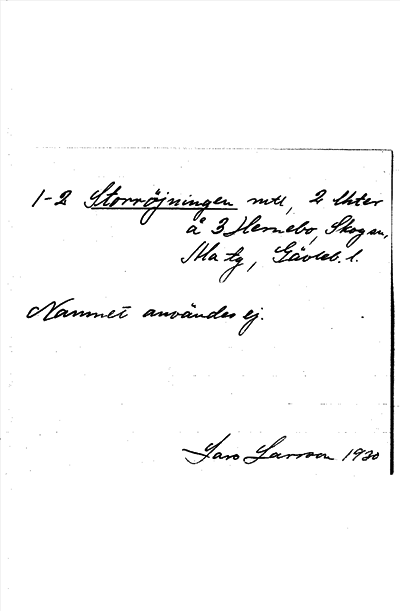 1-2 Storröjningen mtl, 2 lhter
å 3 Hemebo, Skog sn,
Ala tg, Gävleb. l.
Namnet användes ej.
Lars Larsson 1930